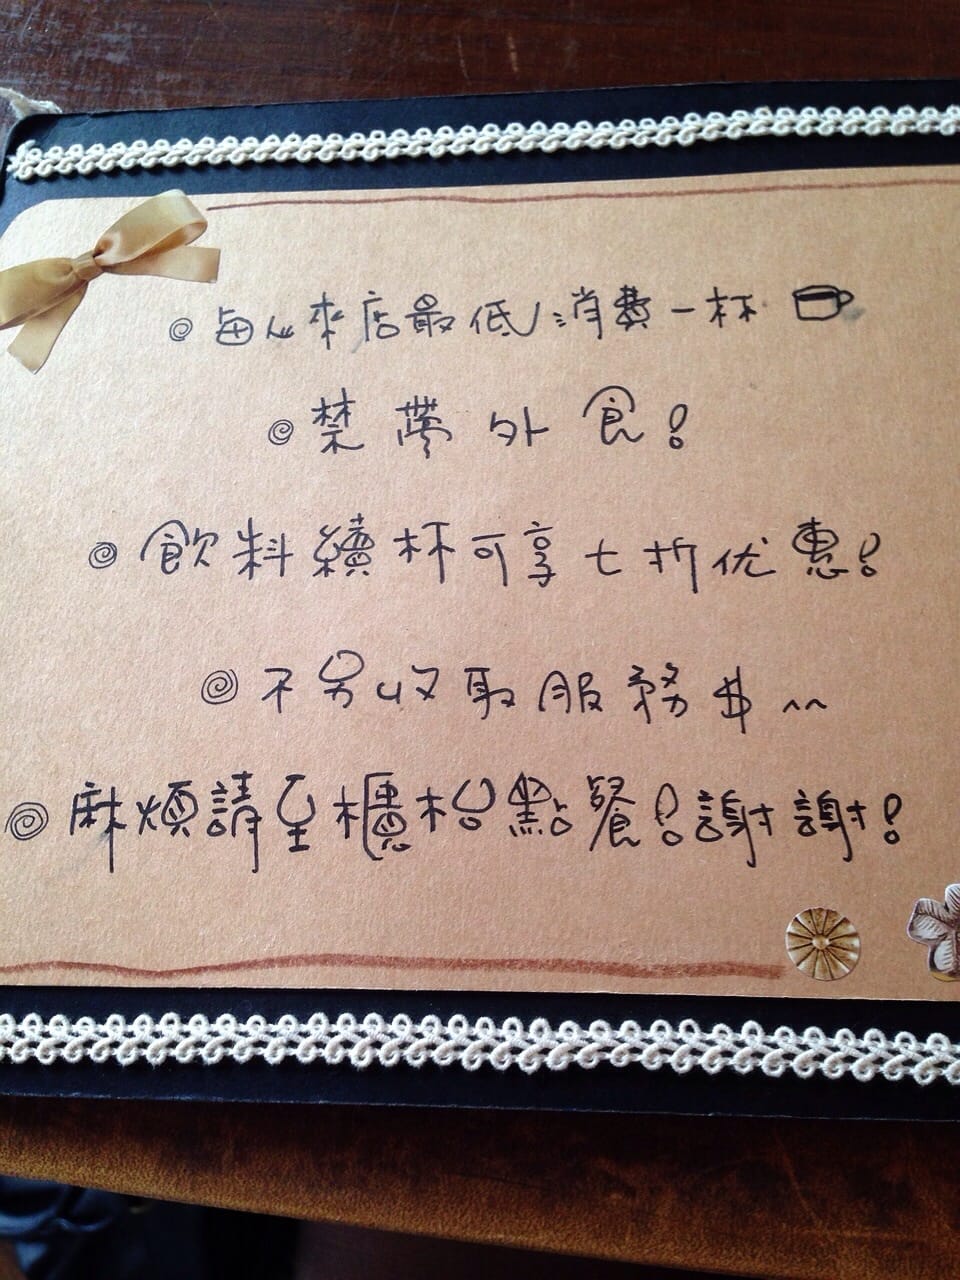 每人來店最低消費一杯
禁帶外食!
飲料續杯可享七折优惠!
不另收取服務$^^
麻煩請至櫃枱點餐!謝謝!